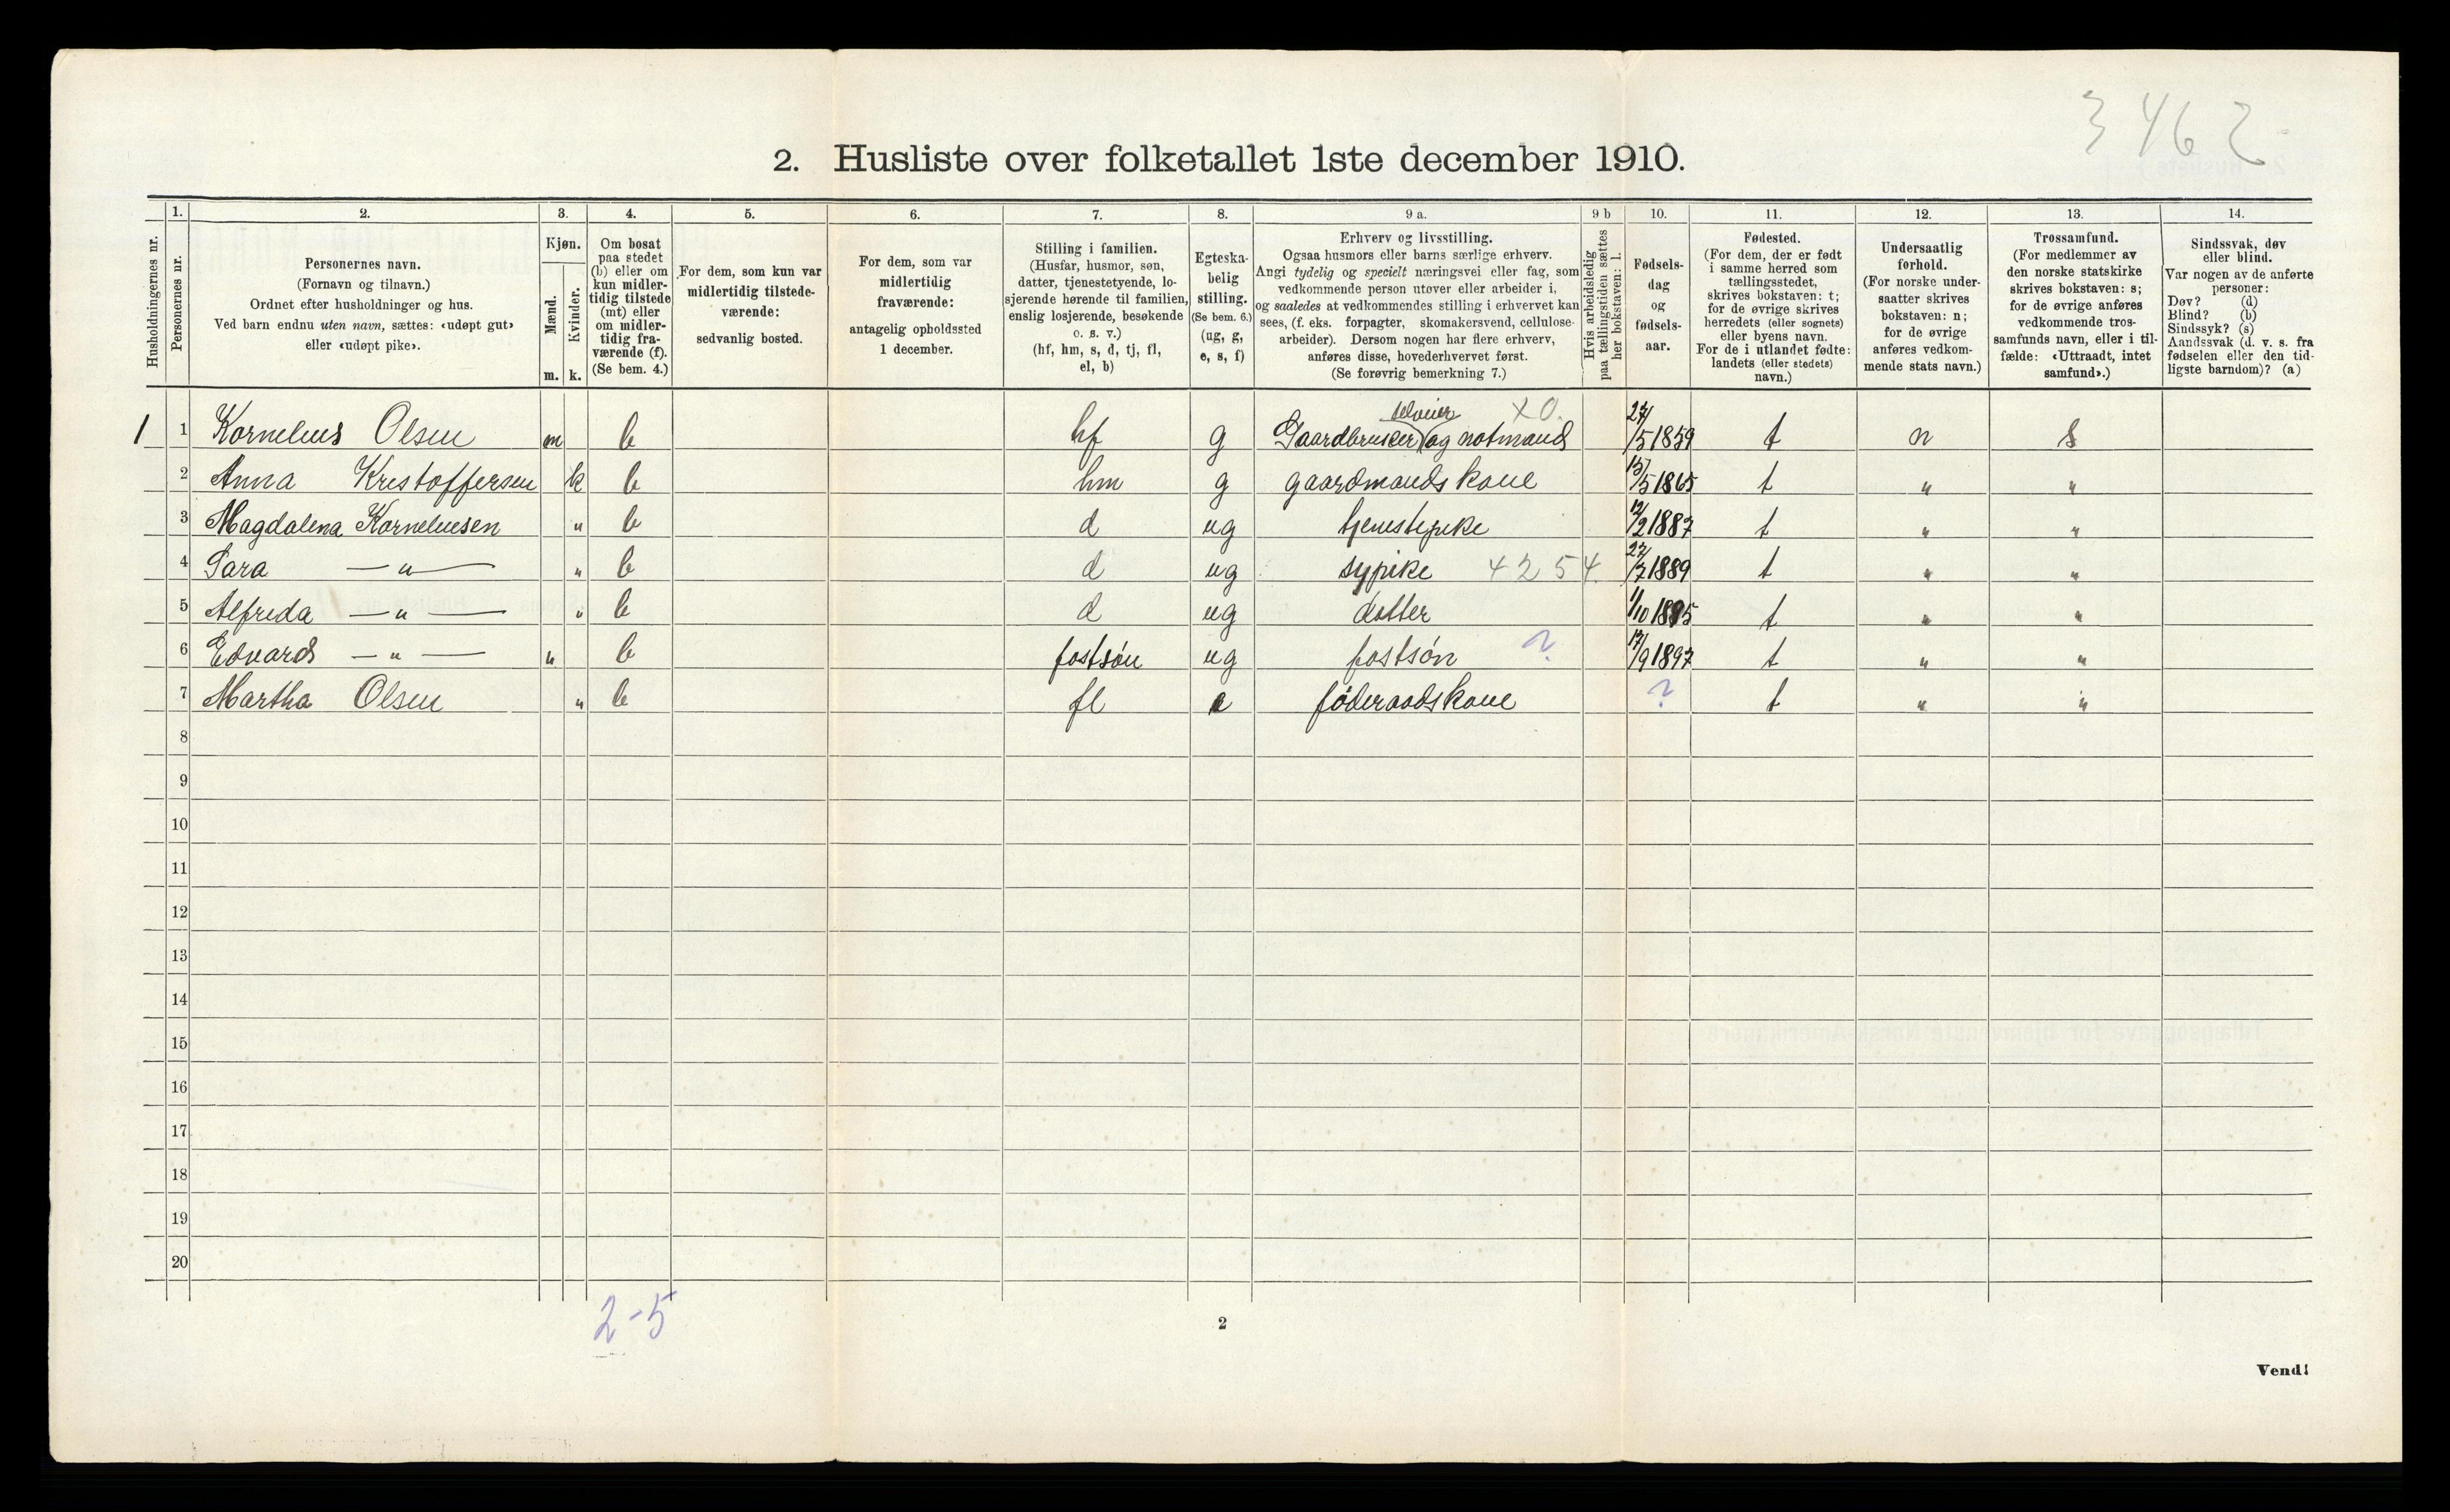 3462
2. Husliste over folketallet 1ste december 1910.
Husholdningernes nr.
1.
Personernes nr.
2.
Personernes navn.
(Fornavn og tilnavn.)
Ordnet efter husholdninger og hus.
Ved barn endnu uten navn, sættes: «udøpt gut»
eller «udøpt pike».
3.
Kjøn.
Mænd.
Kvinder.
m. k.
4.
Om bosat
paa stedet
(b) eller om
kun midler-
tidig tilstede
(mt) eller
om midler-
tidig fra-
værende (f).
(Se bem. 4.)
5.
For dem, som kun var
midlertidig tilstede-
værende:
sedvanlig bosted.
6.
For dem, som var
midlertidig
fraværende:
antagelig opholdssted
1 december.
7.
Stilling i familien.
(Husfar, husmor, søn,
datter, tjenestetyende, lo-
sjerende hørende til familien,
enslig losjerende, besøkende
o. s. v.)
(hf, hm, s, d, tj, fl,
el, b)
8.
Egteska-
belig
stilling.
(Se bem. 6.)
(ug, g,
e, s, f)
9 a.
Erhverv og livsstilling.
Ogsaa husmors eller barns særlige erhverv.
Angi tydelig og specielt næringsvei eller fag, som
vedkommende person utøver eller arbeider i,
og saaledes at vedkommendes stilling i erhvervet kan
sees, (f. eks. forpagter, skomakersvend, cellulose-
arbeider). Dersom nogen har flere erhverv,
anføres disse, hovederhvervet først.
(Se forøvrig bemerkning 7.)
9 b
Hvis arbeidsledig
paa tællingstiden sættes
her bokstaven: l.
10.
Fødsels-
dag
og
fødsels-
aar.
11.
Fødested.
(For dem, der er født
i samme herred som
tællingsstedet,
skrives bokstaven: t;
for de øvrige skrives
herredets (eller sognets)
eller byens navn.
For de i utlandet fødte:
landets (eller stedets)
navn.)
12.
Undersaatlig
forhold.
(For norske under-
saatter skrives
bokstaven: n;
for de øvrige
anføres vedkom-
mende stats navn.)
13.
Trossamfund.
(For medlemmer av
den norske statskirke
skrives bokstaven: s;
for de øvrige anføres
vedkommende tros-
samfunds navn, eller i til-
fælde: «Uttraadt, intet
samfund».)
14.
Sindssvak, døv
eller blind.
Var nogen av de anførte
personer:
Døv? (d)
Blind? (b)
Sindssyk? (s)
Aandssvak (d. v. s. fra
fødselen eller den tid-
ligste barndom)? (a)
selveier X0.
1 1 Kornelius Olsen m b hf g Gaardbruker (og notmand 27/5 1859 t n s
2 Anna Kristoffersen k b hm g gaardmands kone 15/5 1865 t " "
3 Magdalena Korneliusen " b d ug tjenestepike 12/2 1887 t " "
4 Sara — " — " b d ug sypike 4254. 27/7 1889 t " "
5 Alfreda — " — " b d ug datter 1/10 1895 t " "
6 Edvard — " — " b fostsøn ug fostsøn ? 17/9 1897 t " "
7 Martha Olsen " b fl e føderaadskone ? t " "
8
9
10
11
12
13
14
15
16
17
18
19
20
2-5
2
Vend!